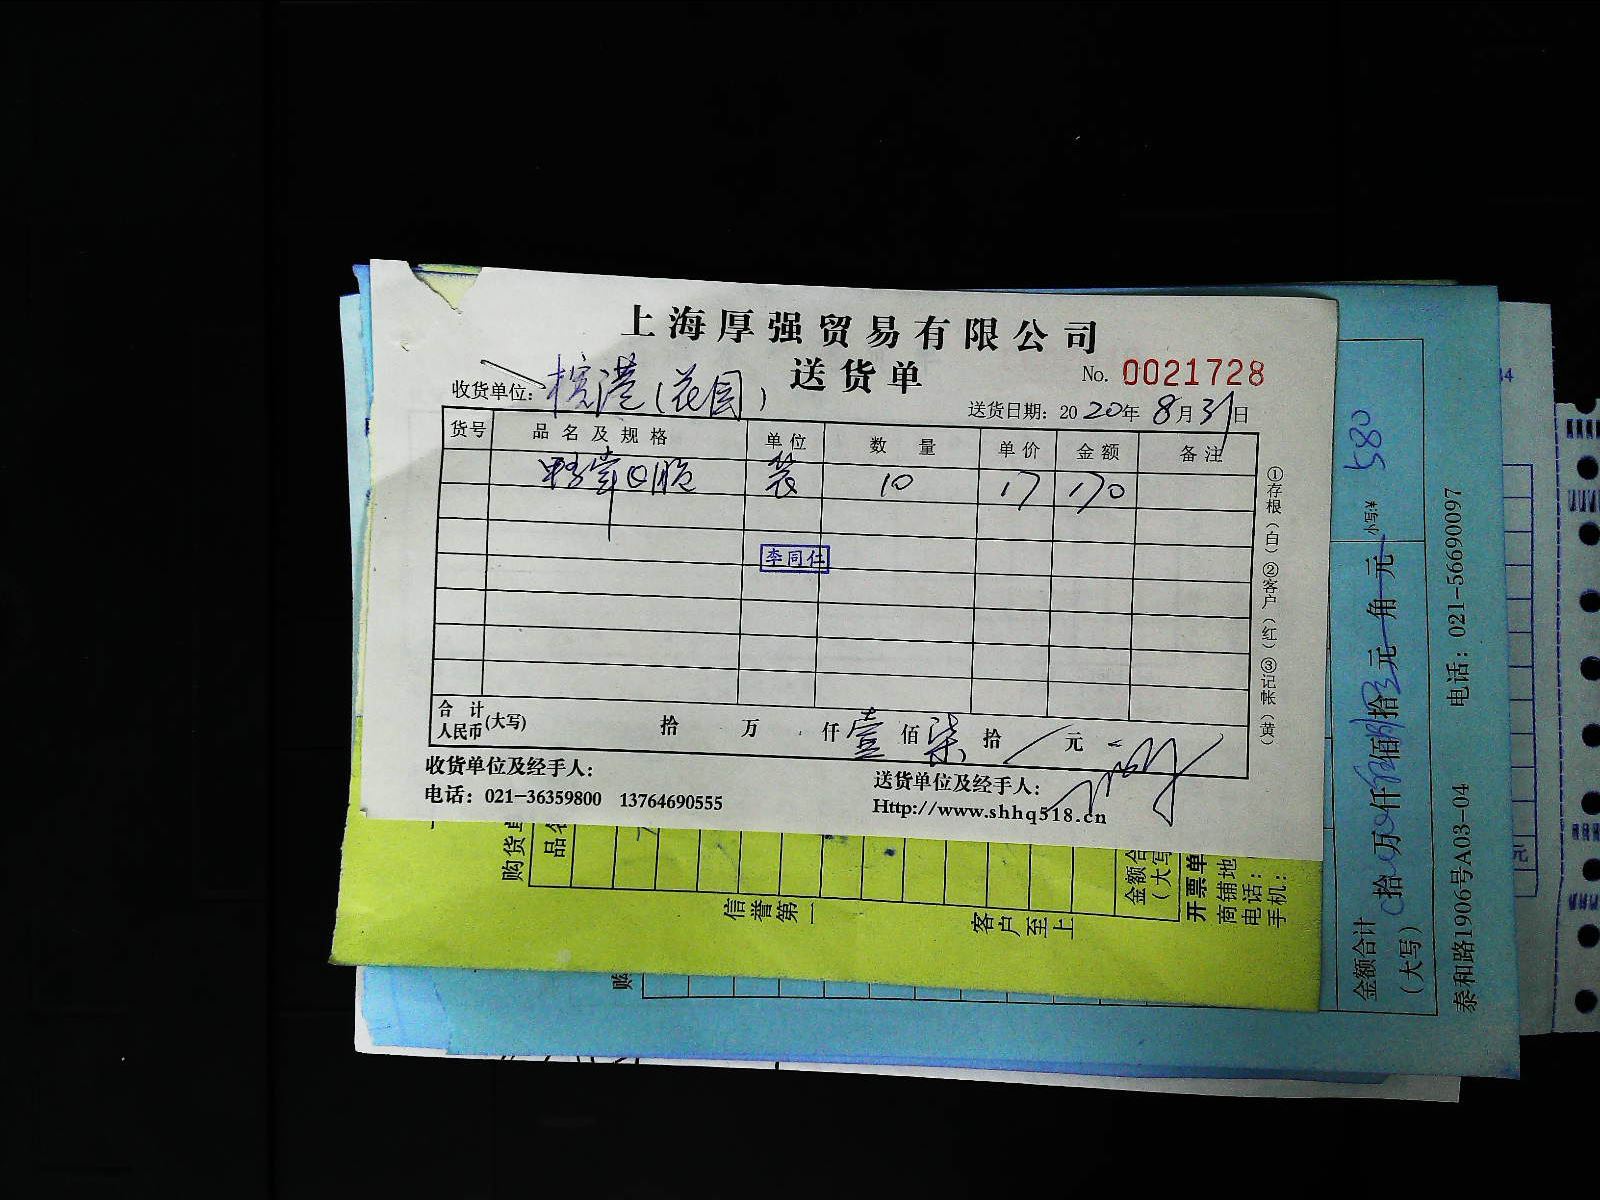 上海厚强贸易有限公司
送货单
No. 0021728
收货单位: 榕港(花园)
送货日期: 2020年8月31日
货号 品名及规格 单位 数量 单价 金额 备注
10 17 170
李同仁
合计人民币(大写) 拾 万 仟壹佰柒拾 元
收货单位及经手人:
电话: 021-36359800 13764690555
送货单位及经手人:
Http://www.shhq518.cn
①存根(白)②客户(红)③记帐(黄)
购货单
品名
信誉第一
客户至上
金额合
(大写
开票单
商铺地
电话:
手机:
购
580
小写¥
金额合计
(大写)
拾 万 仟 佰 拾 元 角 元
泰和路1906号A03-04 电话: 021-56690097